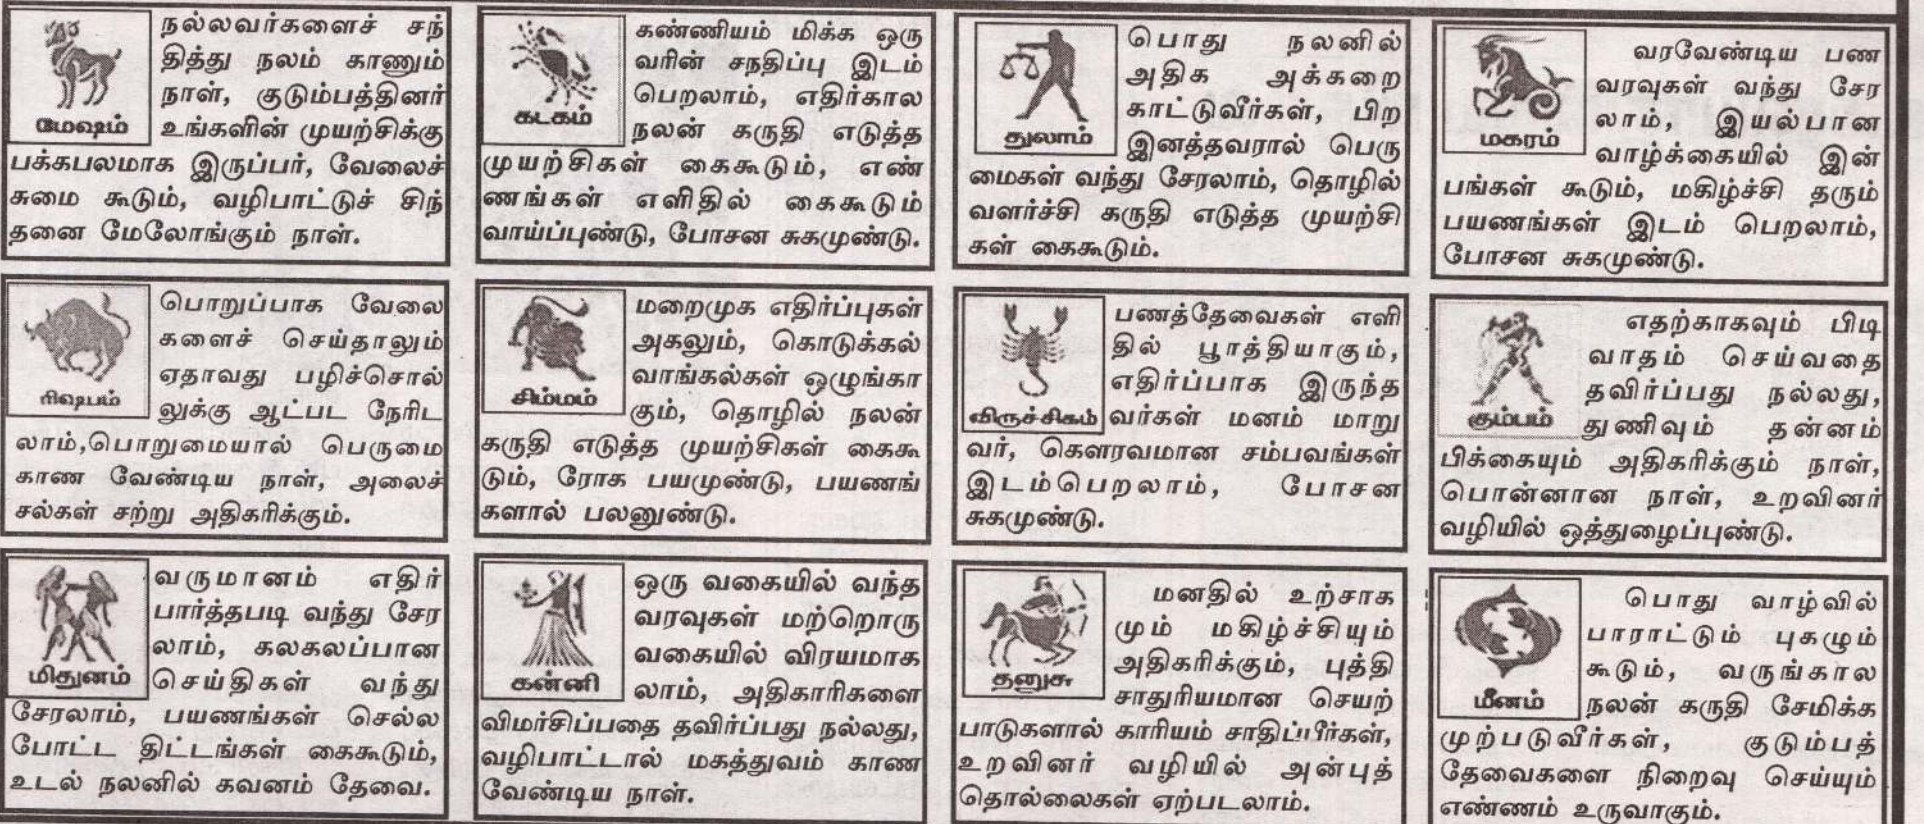 நல்லவர்களைச் சந்
தித்து நலம் காணும்
நாள், குடும்பத்தினர்
உங்களின் முயற்சிக்கு
மேஷம்
பக்கபலமாக இருப்பர், வேலைச்
சுமை கூடும், வழிபாட்டுச் சிந்
தனை மேலோங்கும் நாள்.
பொறுப்பாக வேலை
களைச் செய்தாலும்
ஏதாவது பழிச்சொல்
ரிஷபம்
லுக்கு ஆட்பட நேரிட
லாம்,பொறுமையால் பெருமை
காண வேண்டிய நாள், அலைச்
சல்கள் சற்று அதிகரிக்கும்.
வருமானம் எதிர்
பார்த்தபடி வந்து சேர
லாம், கலகலப்பான
மிதுனம்
செய்திகள் வந்து
சேரலாம், பயணங்கள் செல்ல
போட்ட திட்டங்கள் கைகூடும்,
உடல் நலனில் கவனம் தேவை.
கண்ணியம் மிக்க ஒரு
வரின் சநதிப்பு இடம்
பெறலாம், எதிர்கால
கடகம்
நலன் கருதி எடுத்த
முயற்சிகள் கைகூடும், எண்
ணங்கள் எளிதில் கைகூடும்
வாய்ப்புண்டு, போசன சுகமுண்டு.
மறைமுக எதிர்ப்புகள்
அகலும், கொடுக்கல்
வாங்கல்கள் ஒழுங்கா
சிம்மம்
கும், தொழில் நலன்
கருதி எடுத்த முயற்சிகள் கைகூ
டும், ரோக பயமுண்டு, பயணங்
களால் பலனுண்டு.
ஒரு வகையில் வந்த
வரவுகள் மற்றொரு
வகையில் விரயமாக
கன்னி
லாம், அதிகாரிகளை
விமர்சிப்பதை தவிர்ப்பது நல்லது,
வழிபாட்டால் மகத்துவம் காண
வேண்டிய நாள்.
பொது நலனில்
அதிக அக்கறை
காட்டுவீர்கள், பிற
துலாம்
இனத்தவரால் பெரு
மைகள் வந்து சேரலாம், தொழில்
வளர்ச்சி கருதி எடுத்த முயற்சி
கள் கைகூடும்.
பணத்தேவைகள் எளி
தில் பூாத்தியாகும்,
எதிர்ப்பாக இருந்த
விருச்சிகம்
வர்கள் மனம் மாறு
வர், கௌரவமான சம்பவங்கள்
இடம்பெறலாம், போசன
சுகமுண்டு.
மனதில் உற்சாக
மும் மகிழ்ச்சியும்
அதிகரிக்கும், புத்தி
தனுசு
சாதுரியமான செயற்
பாடுகளால் காரியம் சாதிப்பீர்கள்,
உறவினர் வழியில் அன்புத்
தொல்லைகள் ஏற்படலாம்.
வரவேண்டிய பண
வரவுகள் வந்து சேர
லாம், இயல்பான
மகரம்
வாழ்க்கையில் இன்
பங்கள் கூடும், மகிழ்ச்சி தரும்
பயணங்கள் இடம் பெறலாம்,
போசன சுகமுண்டு.
எதற்காகவும் பிடி
வாதம் செய்வதை
தவிர்ப்பது நல்லது,
கும்பம்
துணிவும் தன்னம்
பிக்கையும் அதிகரிக்கும் நாள்,
பொன்னான நாள், உறவினர்
வழியில் ஒத்துழைப்புண்டு.
பொது வாழ்வில்
பாராட்டும் புகழும்
கூடும், வருங்கால
மீனம்
நலன் கருதி சேமிக்க
முற்படுவீர்கள், குடும்பத்
தேவைகளை நிறைவு செய்யும்
எண்ணம் உருவாகும்.